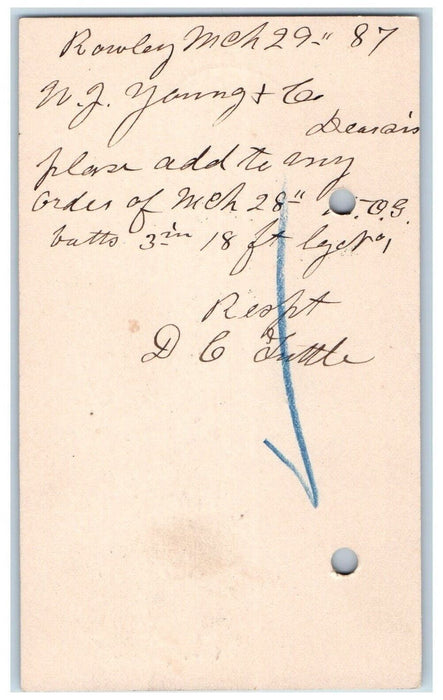 Rowley Mch 29" 87
W. J. Young & Co
Dear sir
please add to my
order of Mch 28"
butts 3 in 18 ft No 1
Respt
D C Tuttle